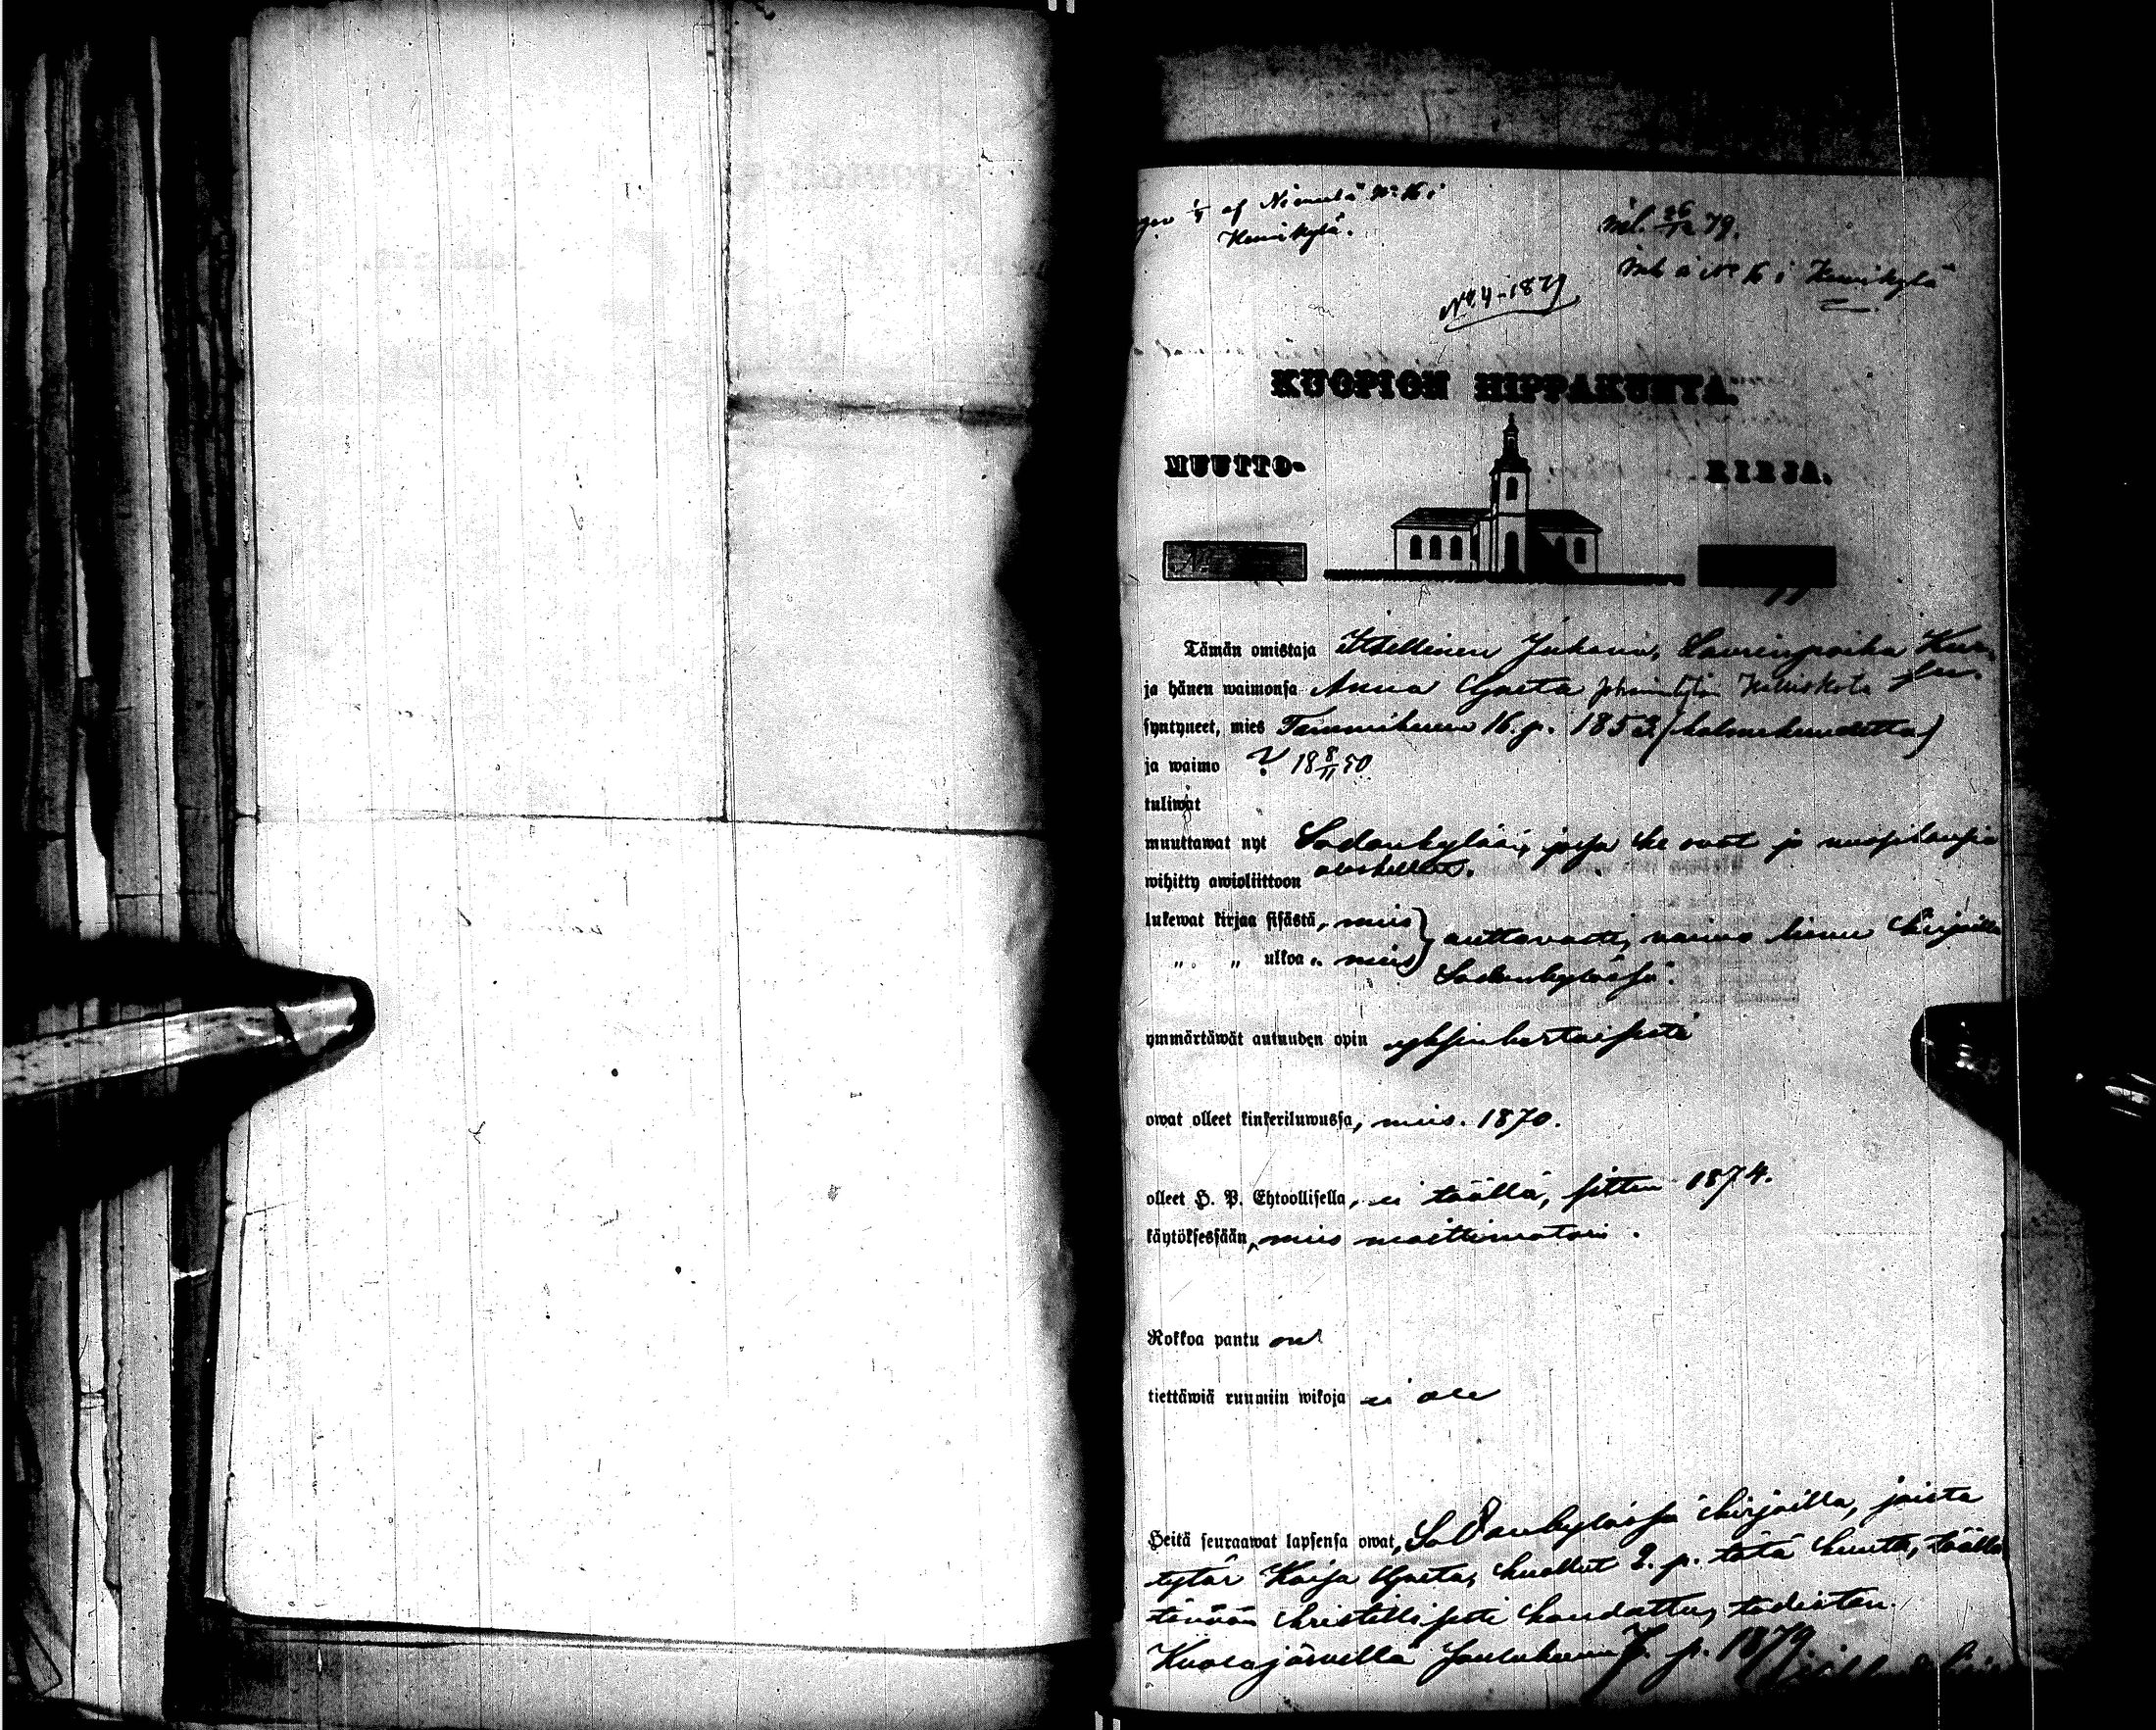 af Niemelä No 16 i
Kemikylä.
inl. 26/12 79.
No 16 i Kemikylä
No 4-1879
KUOPION HIPPAKUNTA.
MUUTTO- KIRJA.
Tämän omistaja Itsellinen Juhani Laurinpoika
ja hänen waimonsa Anna Greta
syntyneet, mies Tammikuun 16. p. 1853 (kolmekuudetta)
ja waimo ? 18 8/11 50
tuliwat
muuttawat nyt Sodankylään, jossa he ovat jo
wihitty awioliittoon oleskelleet.
lukewat kirjaa sisästä, mies } auttavasti, vaimo kirjoilla
„ „ ulkoa „ mies } Sodankylässä.
ymmärtäwät autuuden opin yksinkertaisesti
owat olleet kinkeriluwussa, mies. 1870.
olleet H. P. Ehtoollisella, ei täällä, sitten 1874.
käytöksessään, mies moittimatoin.
Rokkoa pantu on
tiettäwiä ruumiin wikoja ei ole
Heitä seuraawat lapsensa owat, Sodankylässä kirjoilla, joista
tytär Kaisa Greta, kuollut 2. p. tätä kuuta, täällä
tänään christillisesti haudattu, todistan.
Kuolajärvellä Joulukuun 7. p. 1879